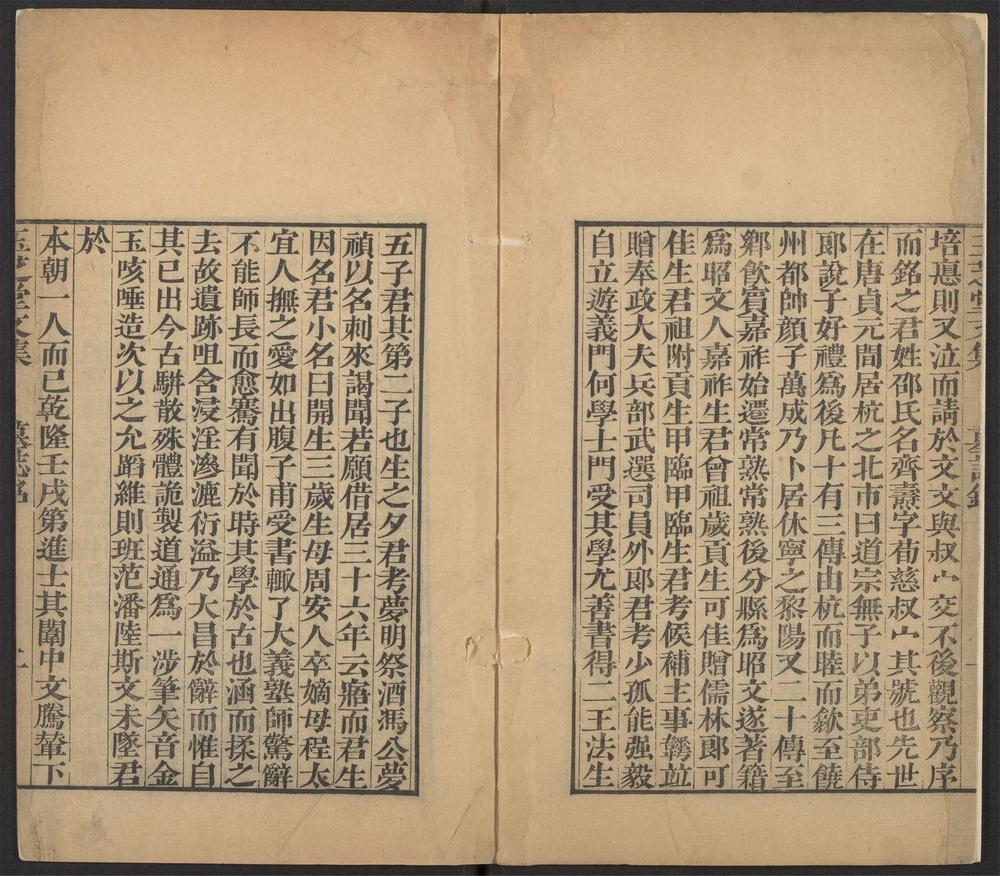 玉芝堂文集 墓誌銘
培悳則又泣而請於文文與叔宀交不後觀察乃序
而銘之君姓邵氏名齊燾字荀慈叔宀其號也先世
在唐貞元間居杭之北市曰道宗無子以弟吏部侍
郎說子好禮為後凡十有三傳由杭而睦而歙至饒
州都帥顏子萬成乃卜居休寧之黎陽又二十傳至
鄉飲賓嘉祚始遷常熟常熟後分縣為昭文遂著籍
為昭文人嘉祚生君曾祖歲貢生可佳贈儒林郎可
佳生君祖附貢生甲臨甲臨生君考候補主事韡竝
贈奉政大夫兵部武選司員外郎君考少孤能强毅
自立遊義門何學士門受其學尤善書得二王法生
五子君其第二子也生之夕君考夢明祭酒馮公夢
禎以名刺來謁聞若願借居三十六年云寤而君生
因名君小名曰開生三歲生母周安人卒嫡母程太
宜人撫之愛如出腹子甫受書輙了大義塾師驚辭
不能師長而愈騫有聞於時其學於古也涵而揉之
去故遺跡咀含浸淫滲漉衍溢乃大昌於辭而惟自
其已出今古駢散殊體詭製道通為一涉筆矢音金
玉咳唾造次以之允蹈維則班范潘陸斯文未墜君
於
本朝一人而已乾隆壬戌第進士其闈中文騰輦下
玉芝堂文集 墓誌銘 二